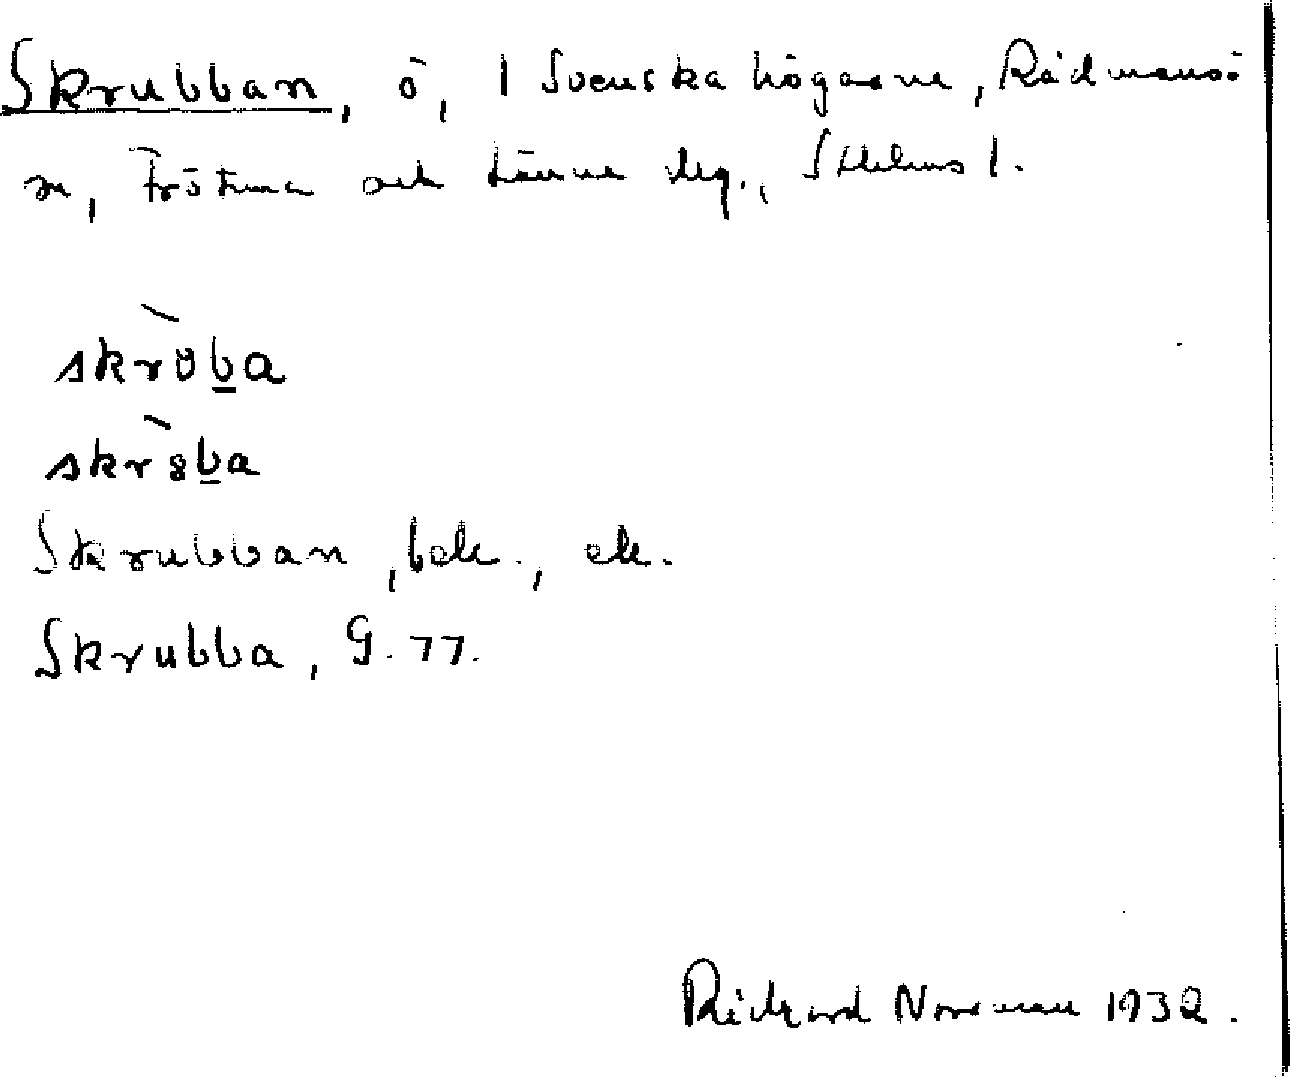 Skrubban, ö, i Svenska högarne, Rådmansö
sn, Frötuna och Länna skg., Sthlms l.
skròba
skrɞ̀ba
Skrubban, bok., ek.
Skrubba, G. 77.
Rickard Norrman 1932.